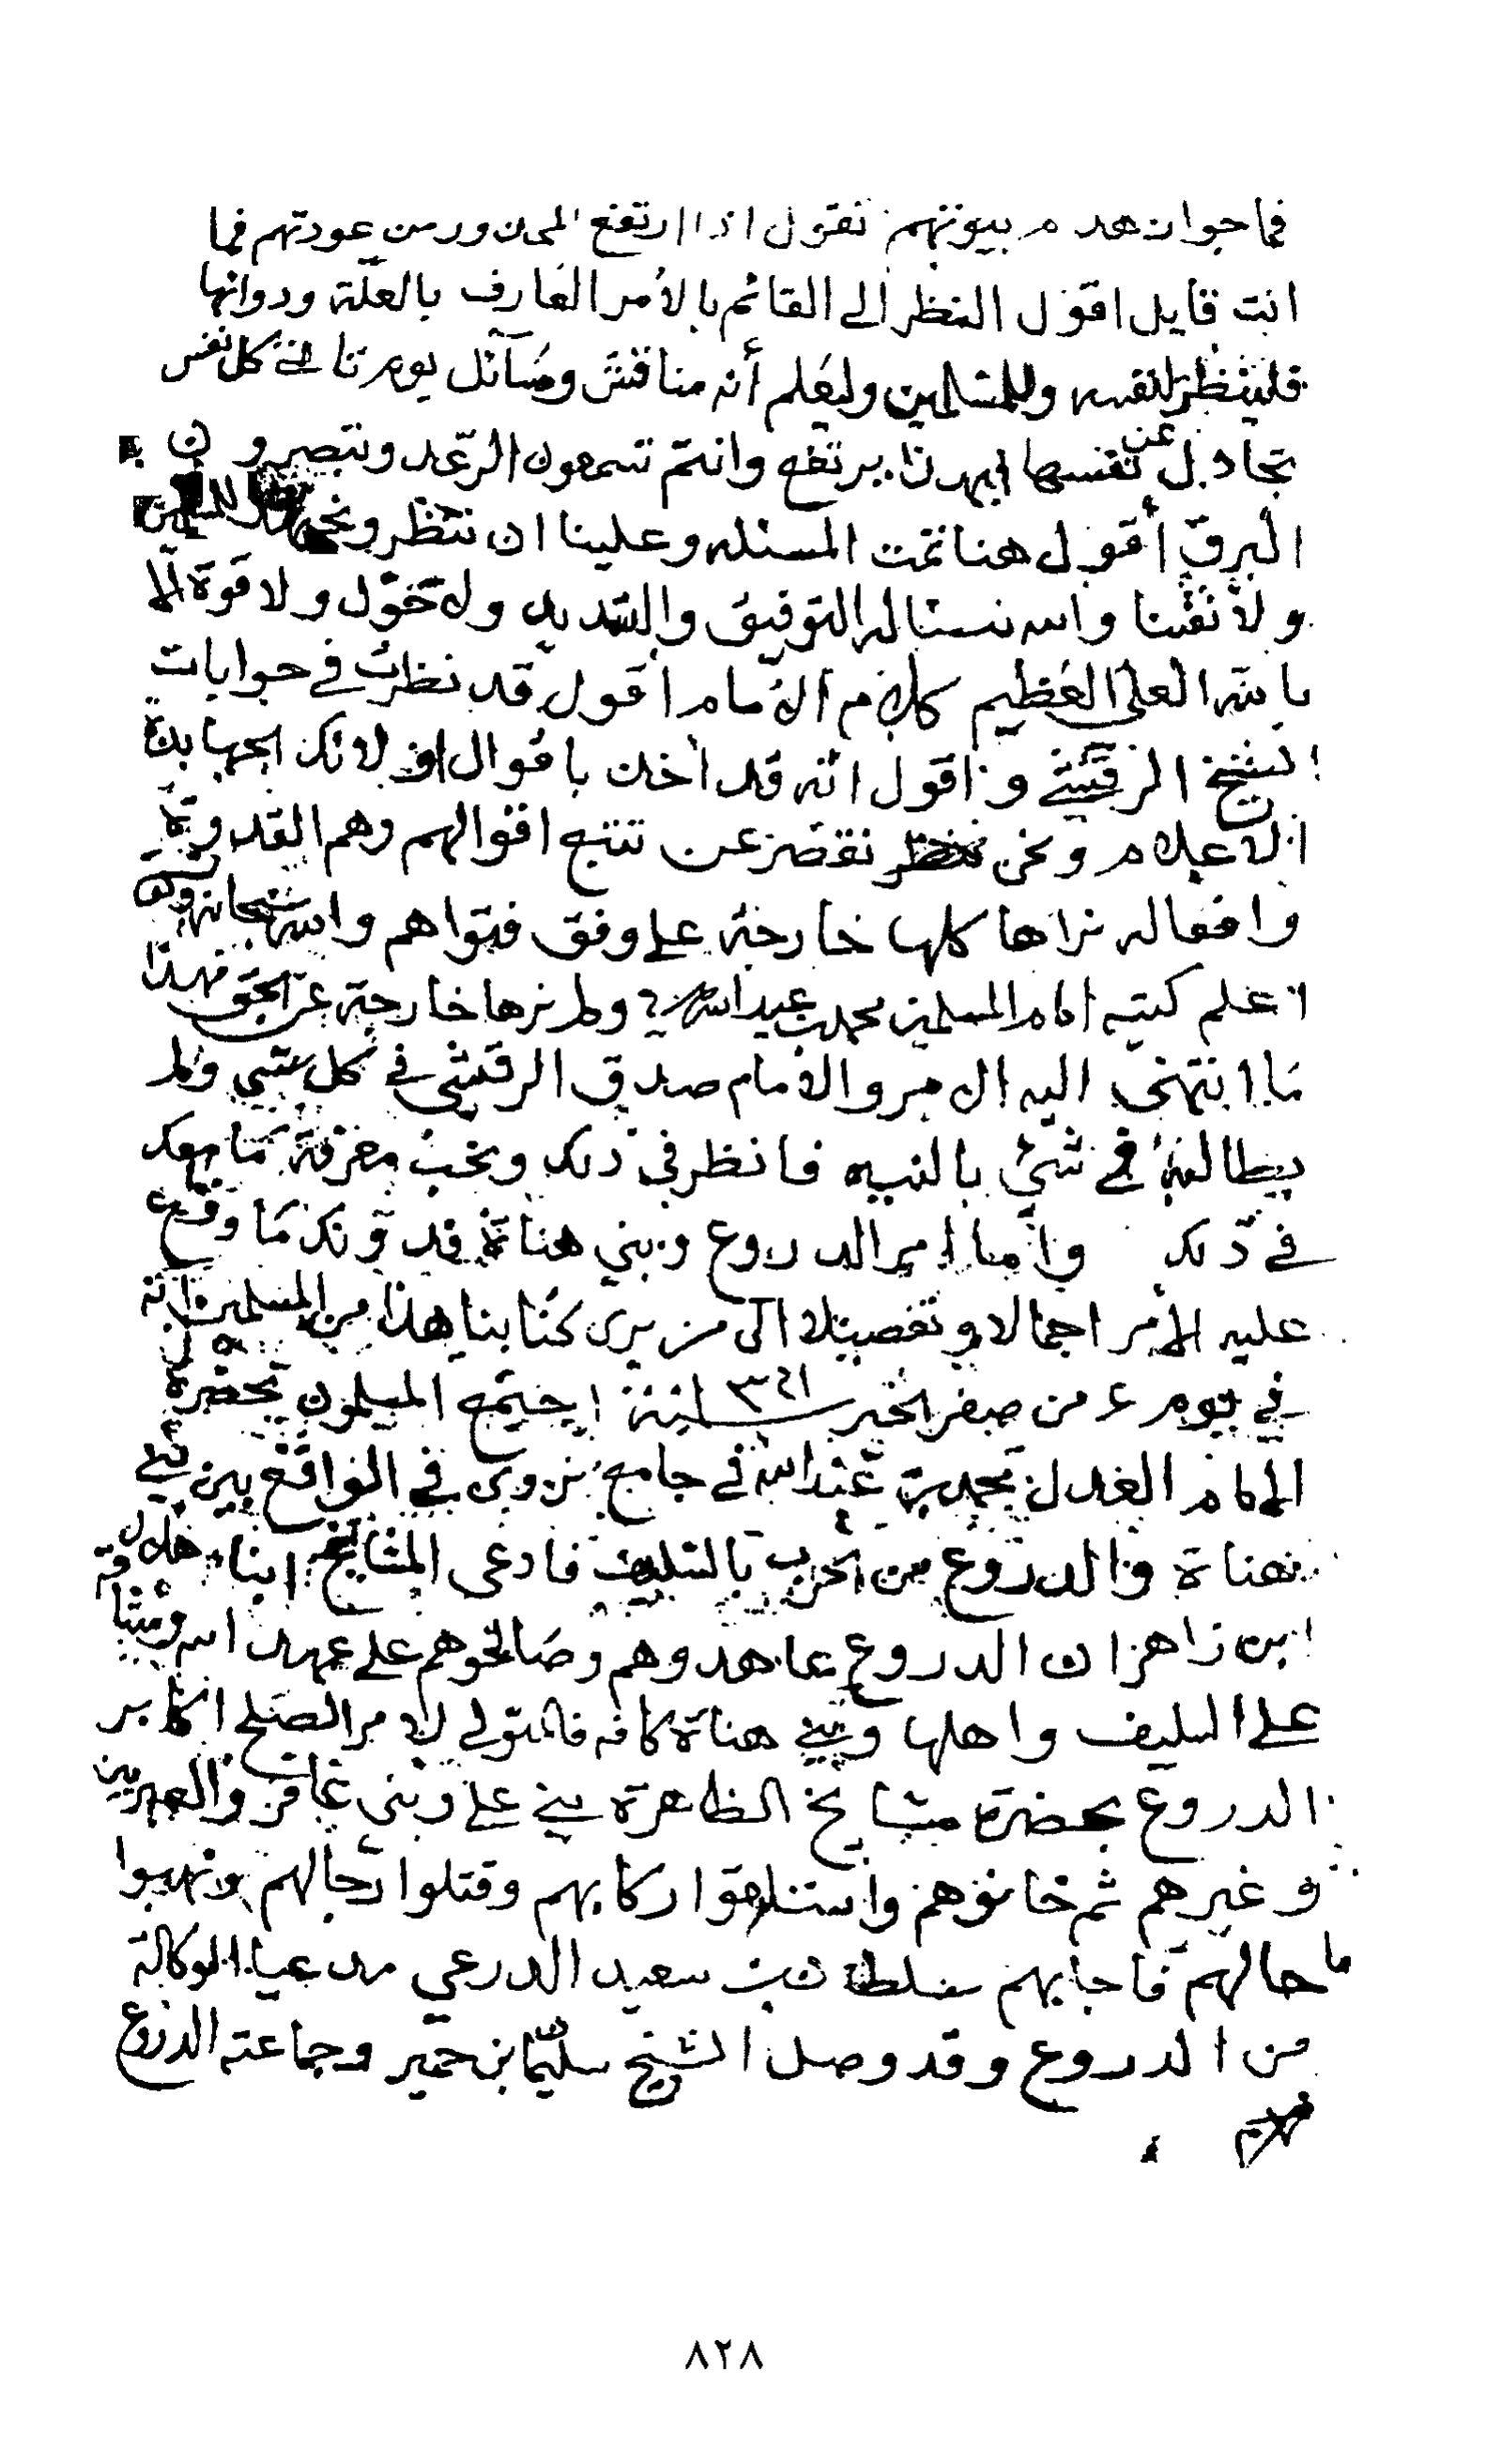 فما جواز هدم بيوتهم نقول اذا ارتفع المحن ورمن عودتهم فما
انت قايل اقول النظر الى القائم بالأمر العارف بالعلة ودوائها
فلينظر لنفسه وللمسلمين وليعلم أنه مناقش ومسآئل يوم تاتي كل نفس
تجادل عن نفسها ابهذا يرتفع وانتم تسمعون الرعد وتبصرون
البرق أقول هنا تمت المسئله وعلينا ان ننظر ونجتهد للمسلمين
ولأنفسنا والله نسئاله التوفيق والتسديد ولا حول ولا قوة الا
بالله العلي العظيم كلام الامام أقول قد نظرت في جوابات
الشيخ الرقيشي واقول انه قد أخذ باقوال اولائك الجهابذة
الاعلام ونحن نقصر عن تتبع اقوالهم وهم القدوة
وافعاله نراها كلها خارجة على وفق فتواهم والله سبحانه
اعلم كتبه امام المسلمين محمد بن عبدالله ولم نرها خارجة عن الحق فهذا
ما انتهى اليه الامر والامام صدق الرقيشي في كل شي ولم
يطالبه في شئ بالنبيه فانظر في ذلك ونحب معرفة ما معك
في ذلك واما امر الدروع وبني هناة فدونك ما وقع
عليه الأمر اجمالا وتفصيلا الى من يرى كتابنا هذا من المسلمين انه
في يوم ٤ من صفر الخير سنة ١٣٦١ اجتمع المسلمون بحضرة
الامام العدل محمد بن عبدالله في جامع نزوى في الواقع بين بني
هناة والدروع من الحرب بالسليف فادعى المشايخ ابناء هلال
ابن زاهر ان الدروع عاهدوهم وصالحوهم على عهد الله وميثاقه
على السليف واهلها وبني هناة كافه فالمتولي لامر الصلح اكابر
الدروع بحضرة مشايخ الظاهرة بني علي وبني غافر والعبريين
وغيرهم ثم خانوهم واستلحقوا ركابهم وقتلوا رجالهم ونهبوا
ما حالهم فاجابهم سلطان بن سعيد الدرعي مدعيا الوكالة
من الدروع وقد وصل الشيخ سليمان بن حمير وجماعته الدروع
٨٢٨